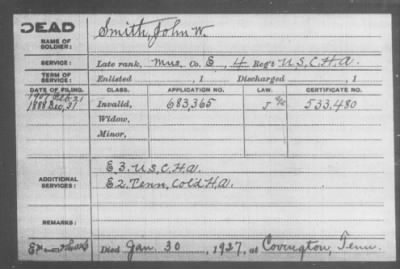 DEAD
NAME OF SOLDIER: Smith, John W.
SERVICE: Late rank, Mus. Co. E, 4 Reg't U.S.C.H.A.
TERM OF SERVICE: Enlisted , 1 Discharged , 1
DATE OF FILING. CLASS. APPLICATION NO. LAW. CERTIFICATE NO.
1907 Feb. 21
1888 Dec. 31 Invalid, 683,365 533,480
Widow,
Minor,
ADDITIONAL SERVICES: E 3. U.S.C.H.A.
E 2. Tenn. Cold H.A.
REMARKS:
Died Jan. 30, 1927, at Covington, Tenn.